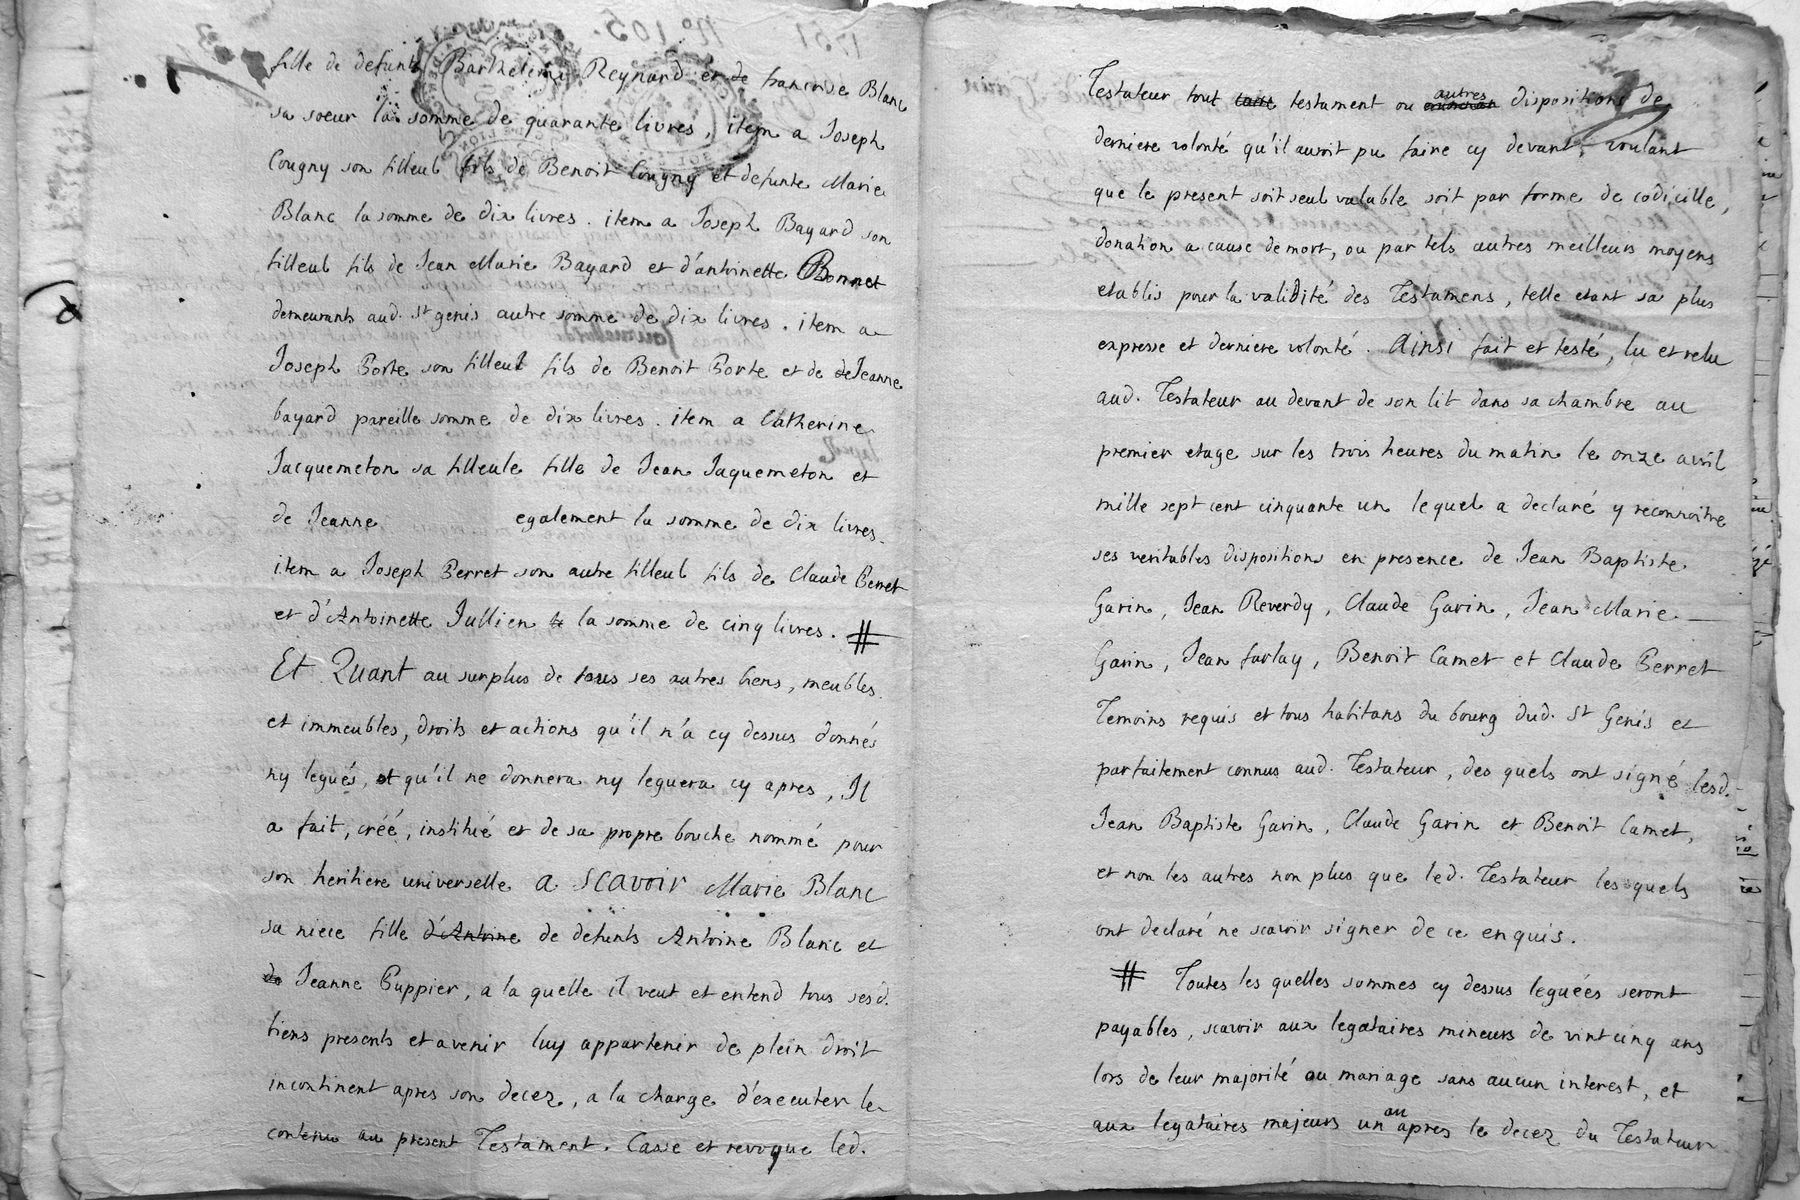 fille de defunt Barthelemi Reynard et de francoise Blanc
sa soeur la somme de quarante livres, item a Joseph
Cougny son filleul fils de Benoit Cougny et defunte Marie
Blanc la somme de dix livres. item a Joseph Bayard son
filleul fils de Jean Marie Bayard et d'antoinette Bonnet
demeurants aud. St genis autre somme de dix livres. item a
Joseph Porte son filleul fils de Benoit Porte et de de Jeanne
bayard pareille somme de dix livres. item a Catherine
Jacquemeton sa filleule fille de Jean Jaquemeton et
de Jeanne egalement la somme de dix livres.
item a Joseph Perret son autre filleul fils de Claude Perret
et d'Antoinette Jullien la somme de cinq livres. #
Et Quant au surplus de tous ses autres biens, meubles
et immeubles, droits et actions qu'il n'a cy dessus donnés
ny legués, et qu'il ne donnera ny leguera cy apres, Il
a fait, créé, institué et de sa propre bouche nommé pour
son heritiere universelle a scavoir Marie Blanc
sa niece fille d'Antoine de defunts Antoine Blanc et
de Jeanne Puppier, a la quelle il veut et entend tous sesd.
biens presents et avenir luy appartenir de plein droit
incontinent apres son decez, a la charge d'éxecuter le
contenu au present Testament. Casse et revoque led.
1751 No 105.
Testateur tout testament ou autres dispositions de
derniere volonté qu'il auroit pu faire cy devant, voulant
que le present soit seul valable soit par forme de codicille,
donation a cause de mort, ou par tels autres meilleurs moyens
etablis pour la validité des Testamens, telle etant sa plus
expresse et derniere volonté. Ainsi fait et testé, lu et relu
aud. Testateur au devant de son lit dans sa chambre au
premier etage sur les trois heures du matin le onze avril
mille sept cent cinquante un lequel a declaré y reconnoitre
ses veritables dispositions en presence de Jean Baptiste
Garin, Jean Reverdy, Claude Garin, Jean Marie
Garin, Jean furlay, Benoit Camet et Claude Perret
Temoins requis et tous habitans du bourg dud. St Genis et
parfaitement connus aud. Testateur, des quels ont signé lesd.
Jean Baptiste Garin, Claude Garin et Benoit Camet,
et non les autres non plus que led. Testateur les quels
ont declaré ne scavoir signer de ce enquis.
# Toutes les quelles sommes cy dessus leguées seront
payables, scavoir aux legataires mineurs de vint cinq ans
lors de leur majorité ou mariage sans aucun interest, et
aux legataires majeurs un an apres le decez du Testateur